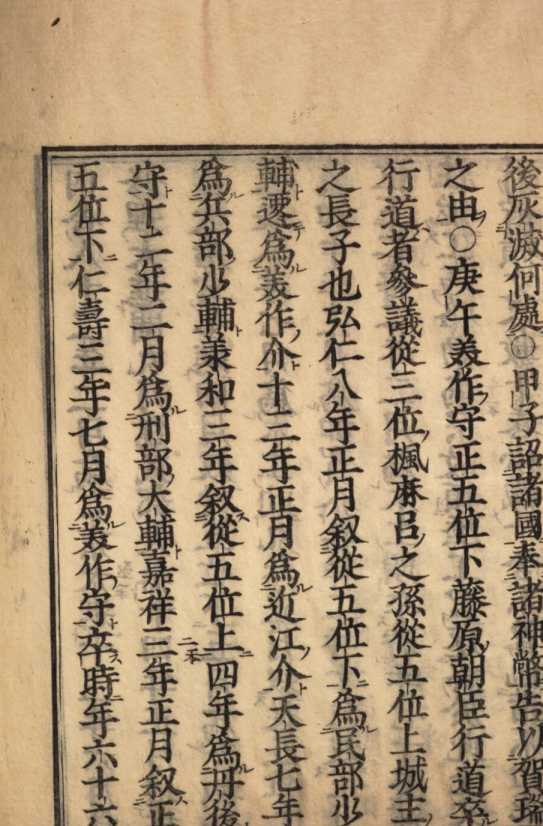 後灰滅何處〇甲子詔諸國奉諸神幣告以賀瑞
之由〇庚午美作守正五位下藤原朝臣行道卒
行道者參議從三位楓麻呂之孫從五位上城主
之長子也弘仁八年正月叙從五位下爲民部少
輔遷爲美作介十三年正月爲近江介天長七年
爲兵部少輔承和三年叙從五位上四年爲丹後
守十二年二月爲刑部大輔嘉祥三年正月叙正
五位下仁壽三年七月爲美作守卒時年六十六